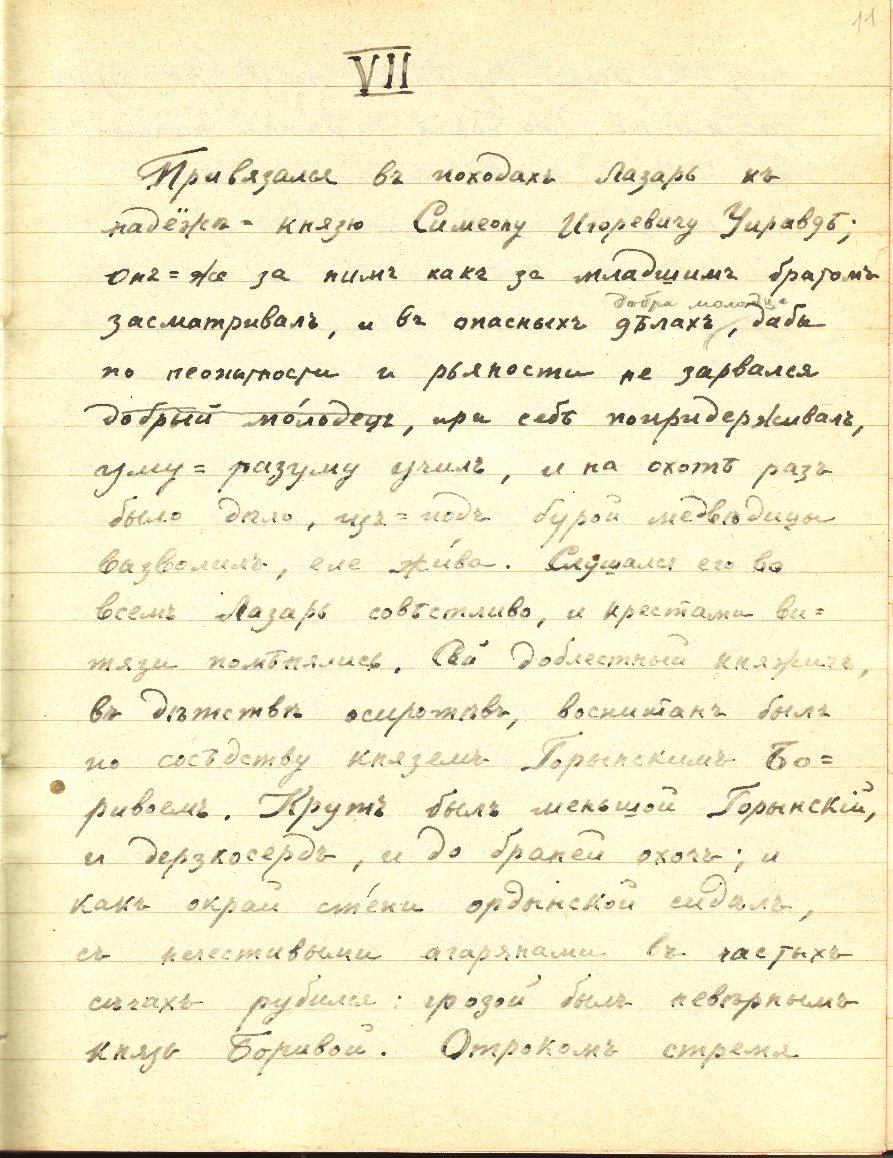 11
VII
Привязался въ походахъ Лазарь къ
надёжѣ = князю Симеону Игоревичу Управдѣ;
онъ = же за нимъ какъ за младшимъ братомъ
добра молодца
засматривалъ, и въ опасныхъ дѣлахъ, дабы
по неопытности и рьяности не зарвался
добрый мо́лодецъ, при себѣ попридерживалъ,
уму = разуму училъ, и на охотѣ разъ
было дѣло, изъ = подъ бурой медвѣдицы
вызволилъ, еле жи́ва. Слушался его во
всемъ Лазарь совѣстливо, и крестами ви=
тязи помѣнялись. Сей доблестный княжичъ,
въ дѣтствѣ осиротѣвъ, воспитанъ былъ
по сосѣдству княземъ Горынскимъ Бо=
ривоемъ. Крутъ былъ меньшой Горынскій,
и дерзкосердъ, и до браней охочъ; и
какъ окрай сте́пи ордынской сидѣлъ,
съ нечестивыми агарянами въ частыхъ
сѣчахъ рубился: грозой былъ невѣрнымъ
князь Боривой. Отрокомъ стремя